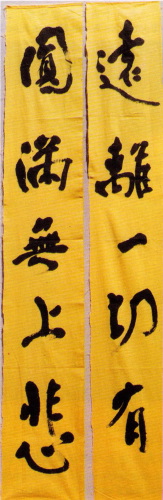 遠離一切有
圓滿無上悲